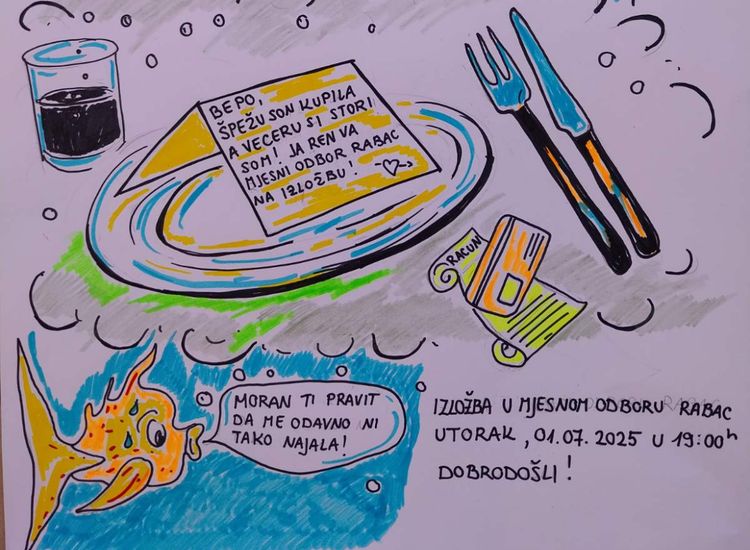 BEPO,
ŠPEŽU SON KUPILA
A VEČERU SI STORI
SOM! JA REN VA
MJESNI ODBOR RABAC
NA IZLOŽBU!
RAČUN
MORAN TI PRAVIT
DA ME ODAVNO NI
TAKO NAJALA!
IZLOŽBA U MJESNOM ODBORU RABAC
UTORAK, 01.07.2025 U 19:00h
DOBRODOŠLI!